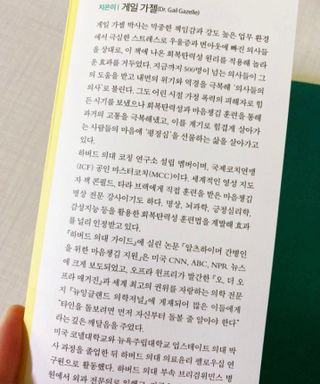 지은이 | 게일 가젤(Dr. Gail Gazelle)
게일 가젤 박사는 막중한 책임감과 강도 높은 업무 환경
에서 극심한 스트레스로 우울증과 번아웃에 빠진 의사들
을 상대로, 이 책에 나온 회복탄력성 원리를 적용해 놀라
운 효과를 거두었다. 지금까지 500명이 넘는 의사들이 그
의 도움을 받고 내면의 위기와 역경을 극복해 '의사들의
의사'로 불린다. 그도 어린 시절 가정 폭력의 피해자로 힘
든 시기를 보냈으나 회복탄력성과 마음챙김 훈련을 통해
과거의 고통을 극복해냈고, 이를 계기로 힘겹게 살아가
는 사람들의 마음에 '평정심'을 선물하는 삶을 살아가고
있다.
하버드 의대 코칭 연구소 설립 멤버이며, 국제코치연맹
(ICF) 공인 마스터코치(MCC)이다. 세계적인 영성 지도
자 잭 콘필드, 타라 브랙에게 직접 훈련을 받은 마음챙김
명상 전문 강사이기도 하다. 명상, 뇌과학, 긍정심리학,
감성지능 등을 활용한 회복탄력성 훈련법을 개발해 효과
를 널리 인정받고 있다.
『하버드 의대 가이드』에 실린 논문 「알츠하이머 간병인
을 위한 마음챙김 지원」은 미국 CNN, ABC, NPR 뉴스
에 크게 보도되었고, 오프라 윈프리가 발간한 『오, 더 오
프라 매거진』과 세계 최고의 권위를 자랑하는 의학 전문
지 『뉴잉글랜드 의학저널』에 게재되어 많은 이들에게
"타인을 돌보려면 먼저 자신부터 돌볼 줄 알아야 한다"
라는 깊은 깨달음을 주었다.
미국 코넬대학교와 뉴욕주립대학교 업스테이트 의대 박
사 과정을 졸업한 뒤 하버드 의대 의료윤리 펠로우십 연
구원으로 활동했다. 하버드 의대 부속 브리검위민스 병
원에서 외과 전문의로 일했고,